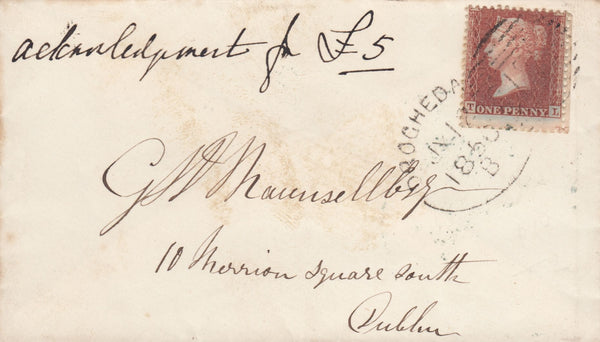 acknowledgment for £5
T ONE PENNY L
DROGHEDA
B
G W Maunsell Esq
10 Merrion Square South
Dublin